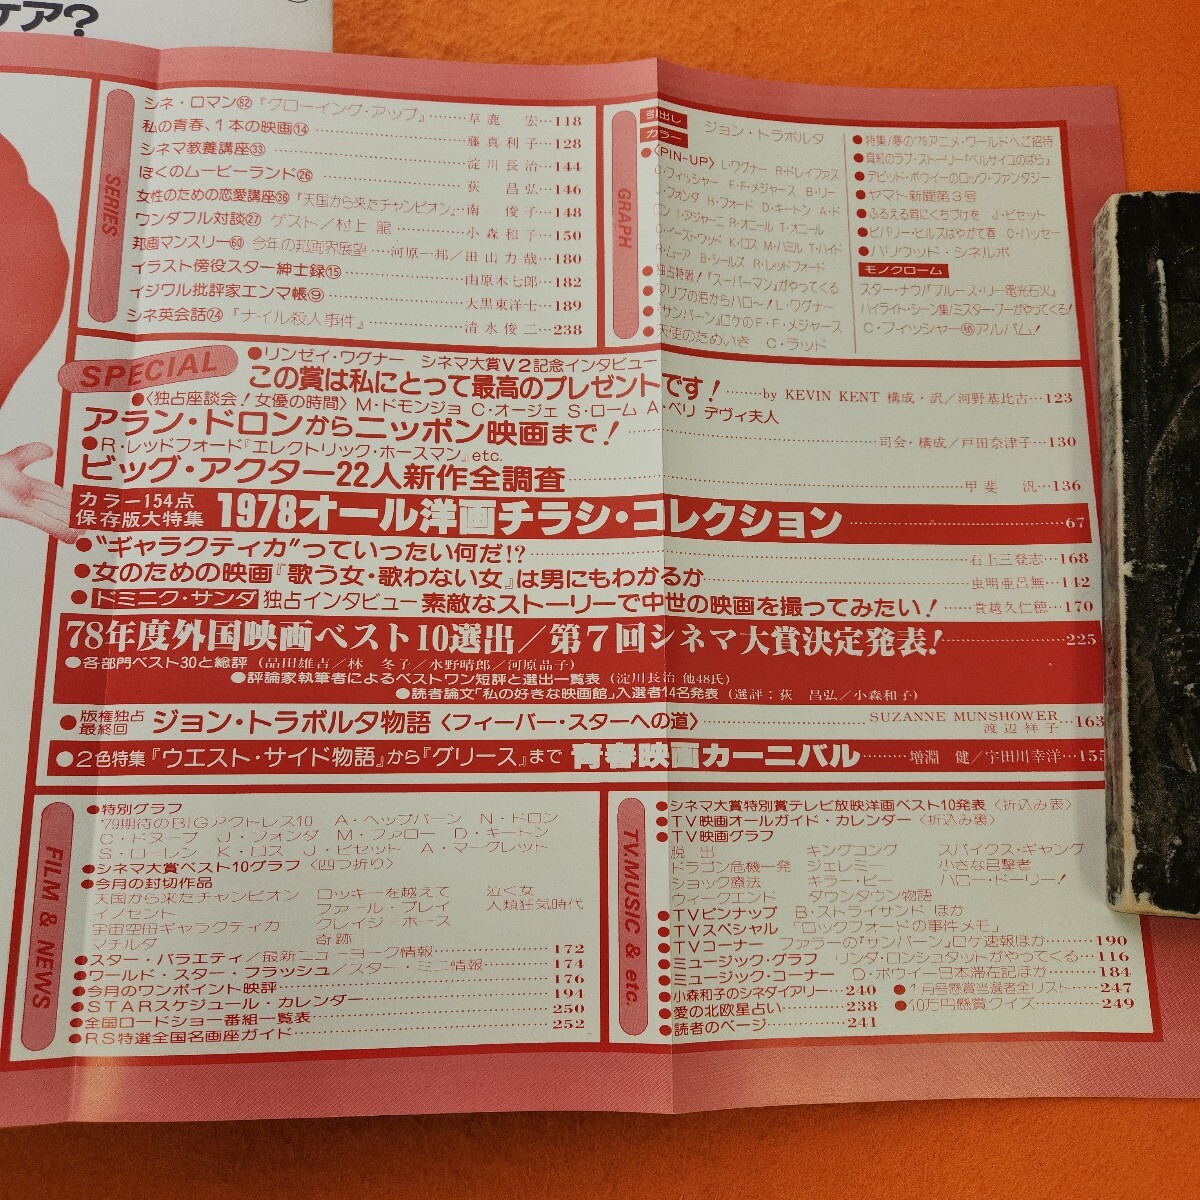 ケア?
SERIES
シネ・ロマン62『グローイング・アップ』……草鹿 宏…118
私の青春、1本の映画⑭……藤真利子…128
シネマ教養講座㉝……淀川長治…144
ぼくのムービーランド㉖……荻 昌弘…146
女性のための恋愛講座㊱『天国から来たチャンピオン』…南 俊子…148
ワンダフル対談㉗ ゲスト/村上 龍……小森和子…150
邦画マンスリー60 今年の邦画界展望……河原一邦/田山力哉…180
イラスト傍役スター紳士録⑮……由原木七郎…182
イジワル批評家エンマ帳⑨……大黒東洋士…189
シネ英会話74『ナイル殺人事件』……清水俊二…238
GRAPH
引出し
カラー
ジョン・トラボルタ
●〈PIN-UP〉L・ワグナー R・ドレイファス
C・フィッシャー F・F・メジャース B・リー
J・フォンダ H・フォード D・キートン A・ド
ロン I・アジャーニ R・オニール T・オニール
C・イーストウッド K・ロス M・ハミル T・ハイド
R・ムーア B・シールズ R・レッドフォード
●独占特報!『スーパーマン』がやってくる
●マリブの海からハロ〜! L・ワグナー
●『サンバーン』ロケのF・F・メジャース
●天使のためいき C・ラッド
●特集/夢の'78アニメ・ワールドへご招待
●真紅のラブ・ストーリー『ベルサイユのばら』
●デビッド・ボウイーのロック・ファンタジー
●ヤマト新聞第3号
●ふるえる唇にくちづけを J・ビセット
●ビバリー・ヒルズはやがて春 O・ハッセー
●ハリウッド・シネルポ
モノクローム
スター・ナウ/『ブルース・リー電光石火』
ハイライト・シーン集/ミスター・ブーがやってくる!
C・フィッシャー㊙アルバム!
SPECIAL
●リンゼイ・ワグナー シネマ大賞V2記念インタビュー
この賞は私にとって最高のプレゼントです!……by KEVIN KENT 構成・訳/河野基比古…123
●〈独占座談会!女優の時間〉M・ドモンジョ C・オージェ S・ローム A・ベリ デヴィ夫人
アラン・ドロンからニッポン映画まで!……司会・構成/戸田奈津子…130
●R・レッドフォード『エレクトリック・ホースマン』etc.
ビッグ・アクター22人新作全調査……甲斐 汎…136
カラー154点
保存版大特集 1978オール洋画チラシ・コレクション……67
●“ギャラクティカ”っていったい何だ!?……石上三登志…168
●女のための映画『歌う女・歌わない女』は男にもわかるか……虫明亜呂無…142
●ドミニク・サンダ 独占インタビュー 素敵なストーリーで中世の映画を撮ってみたい!……貴越久仁穂…170
78年度外国映画ベスト10選出/第7回シネマ大賞決定発表!……225
●各部門ベスト30と総評(品田雄吉/林 冬子/水野晴郎/河原晶子)
●評論家執筆者によるベストワン短評と選出一覧表(淀川長治 他48氏)
●読者論文「私の好きな映画館」入選者14名発表(選評:荻 昌弘/小森和子)
●版権独占
最終回 ジョン・トラボルタ物語〈フィーバー・スターへの道〉……SUZANNE MUNSHOWER
渡辺祥子…163
●2色特集『ウエスト・サイド物語』から『グリース』まで 青春映画カーニバル……増淵 健/宇田川幸洋…155
FILM & NEWS
●特別グラフ
'79期待のBIGアクトレス10 A・ヘップバーン N・ドロン
C・ドヌーブ J・フォンダ M・ファロー D・キートン
S・ローレン K・ロス J・ビセット A・マーグレット
●シネマ大賞ベスト10グラフ〈四つ折り〉
●今月の封切作品
天国から来たチャンピオン ロッキーを越えて 泣く女
イノセント ファール・プレイ 人類狂気時代
宇宙空母ギャラクティカ クレイジー・ホース
マチルダ 奇跡
●スター・バラエティ/最新ニューヨーク情報……172
●ワールド・スター・フラッシュ/スター・ミニ情報……174
●今月のワンポイント映評……176
●STARスケジュール・カレンダー……194
●全国ロードショー番組一覧表……250
●RS特選全国名画座ガイド……252
TV.MUSIC & etc.
●シネマ大賞特別賞テレビ放映洋画ベスト10発表〈折込み表〉
●TV映画オールガイド・カレンダー〈折込み裏〉
●TV映画グラフ
脱出 キングコング スパイクス・ギャング
ドラゴン危機一発 ジェレミー 小さな目撃者
ショック療法 キラー・ビー ハロー・ドーリー!
ウィークエンド ダウンタウン物語
●TVピンナップ B・ストライサンド ほか
●TVスペシャル 「ロックフォードの事件メモ」
●TVコーナー ファラーの『サンバーン』ロケ速報ほか……190
●ミュージック・グラフ リンダ・ロンシュタットがやってくる…116
●ミュージック・コーナー D・ボウイー日本滞在記ほか……184
●小森和子のシネダイアリー…240 ●1月号懸賞当選者全リスト…247
●愛の北欧星占い……238 ●10万円懸賞クイズ……249
●読者のページ……241